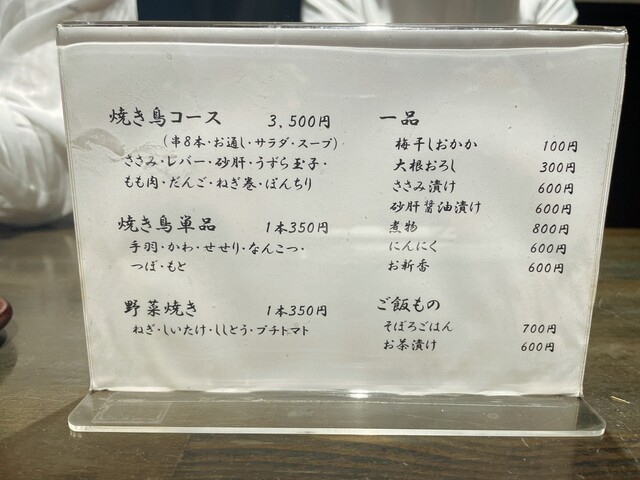 焼き鳥コース 3,500円
(串8本・お通し・サラダ・スープ)
ささみ・レバー・砂肝・うずら玉子・
もも肉・だんご・ねぎ巻・ぼんちり
焼き鳥単品 1本350円
手羽・かわ・せせり・なんこつ・
つぼ・もと
野菜焼き 1本350円
ねぎ・しいたけ・ししとう・プチトマト
一品
梅干しおかか 100円
大根おろし 300円
ささみ漬け 600円
砂肝醤油漬け 600円
煮物 800円
にんにく 600円
お新香 600円
ご飯もの
そぼろごはん 700円
お茶漬け 600円